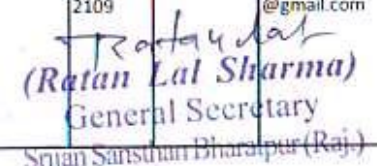 2109 @gmail.com
Ratan Lal
(Ratan Lal Sharma)
General Secretary
Srijan Sansthan Bharatpur (Raj.)